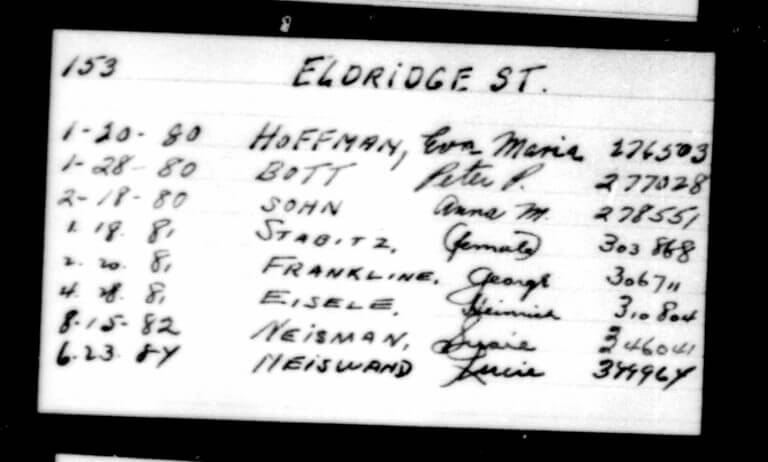 153 ELDRIDGE ST.
1-20-80 HOFFMAN, Eva Maria 276503
1-28-80 BOTT Peter P. 277028
2-18-80 SOHN Anna M. 278551
1.18.81 STABITZ. (female) 303868
2.20.81 FRANKLINE. George 306711
4.28.81 EISELE. Heinrich 310804
8-15-82 NEISMAN, Susie 346041
6.23.84 MEISWAND Lucie 399964